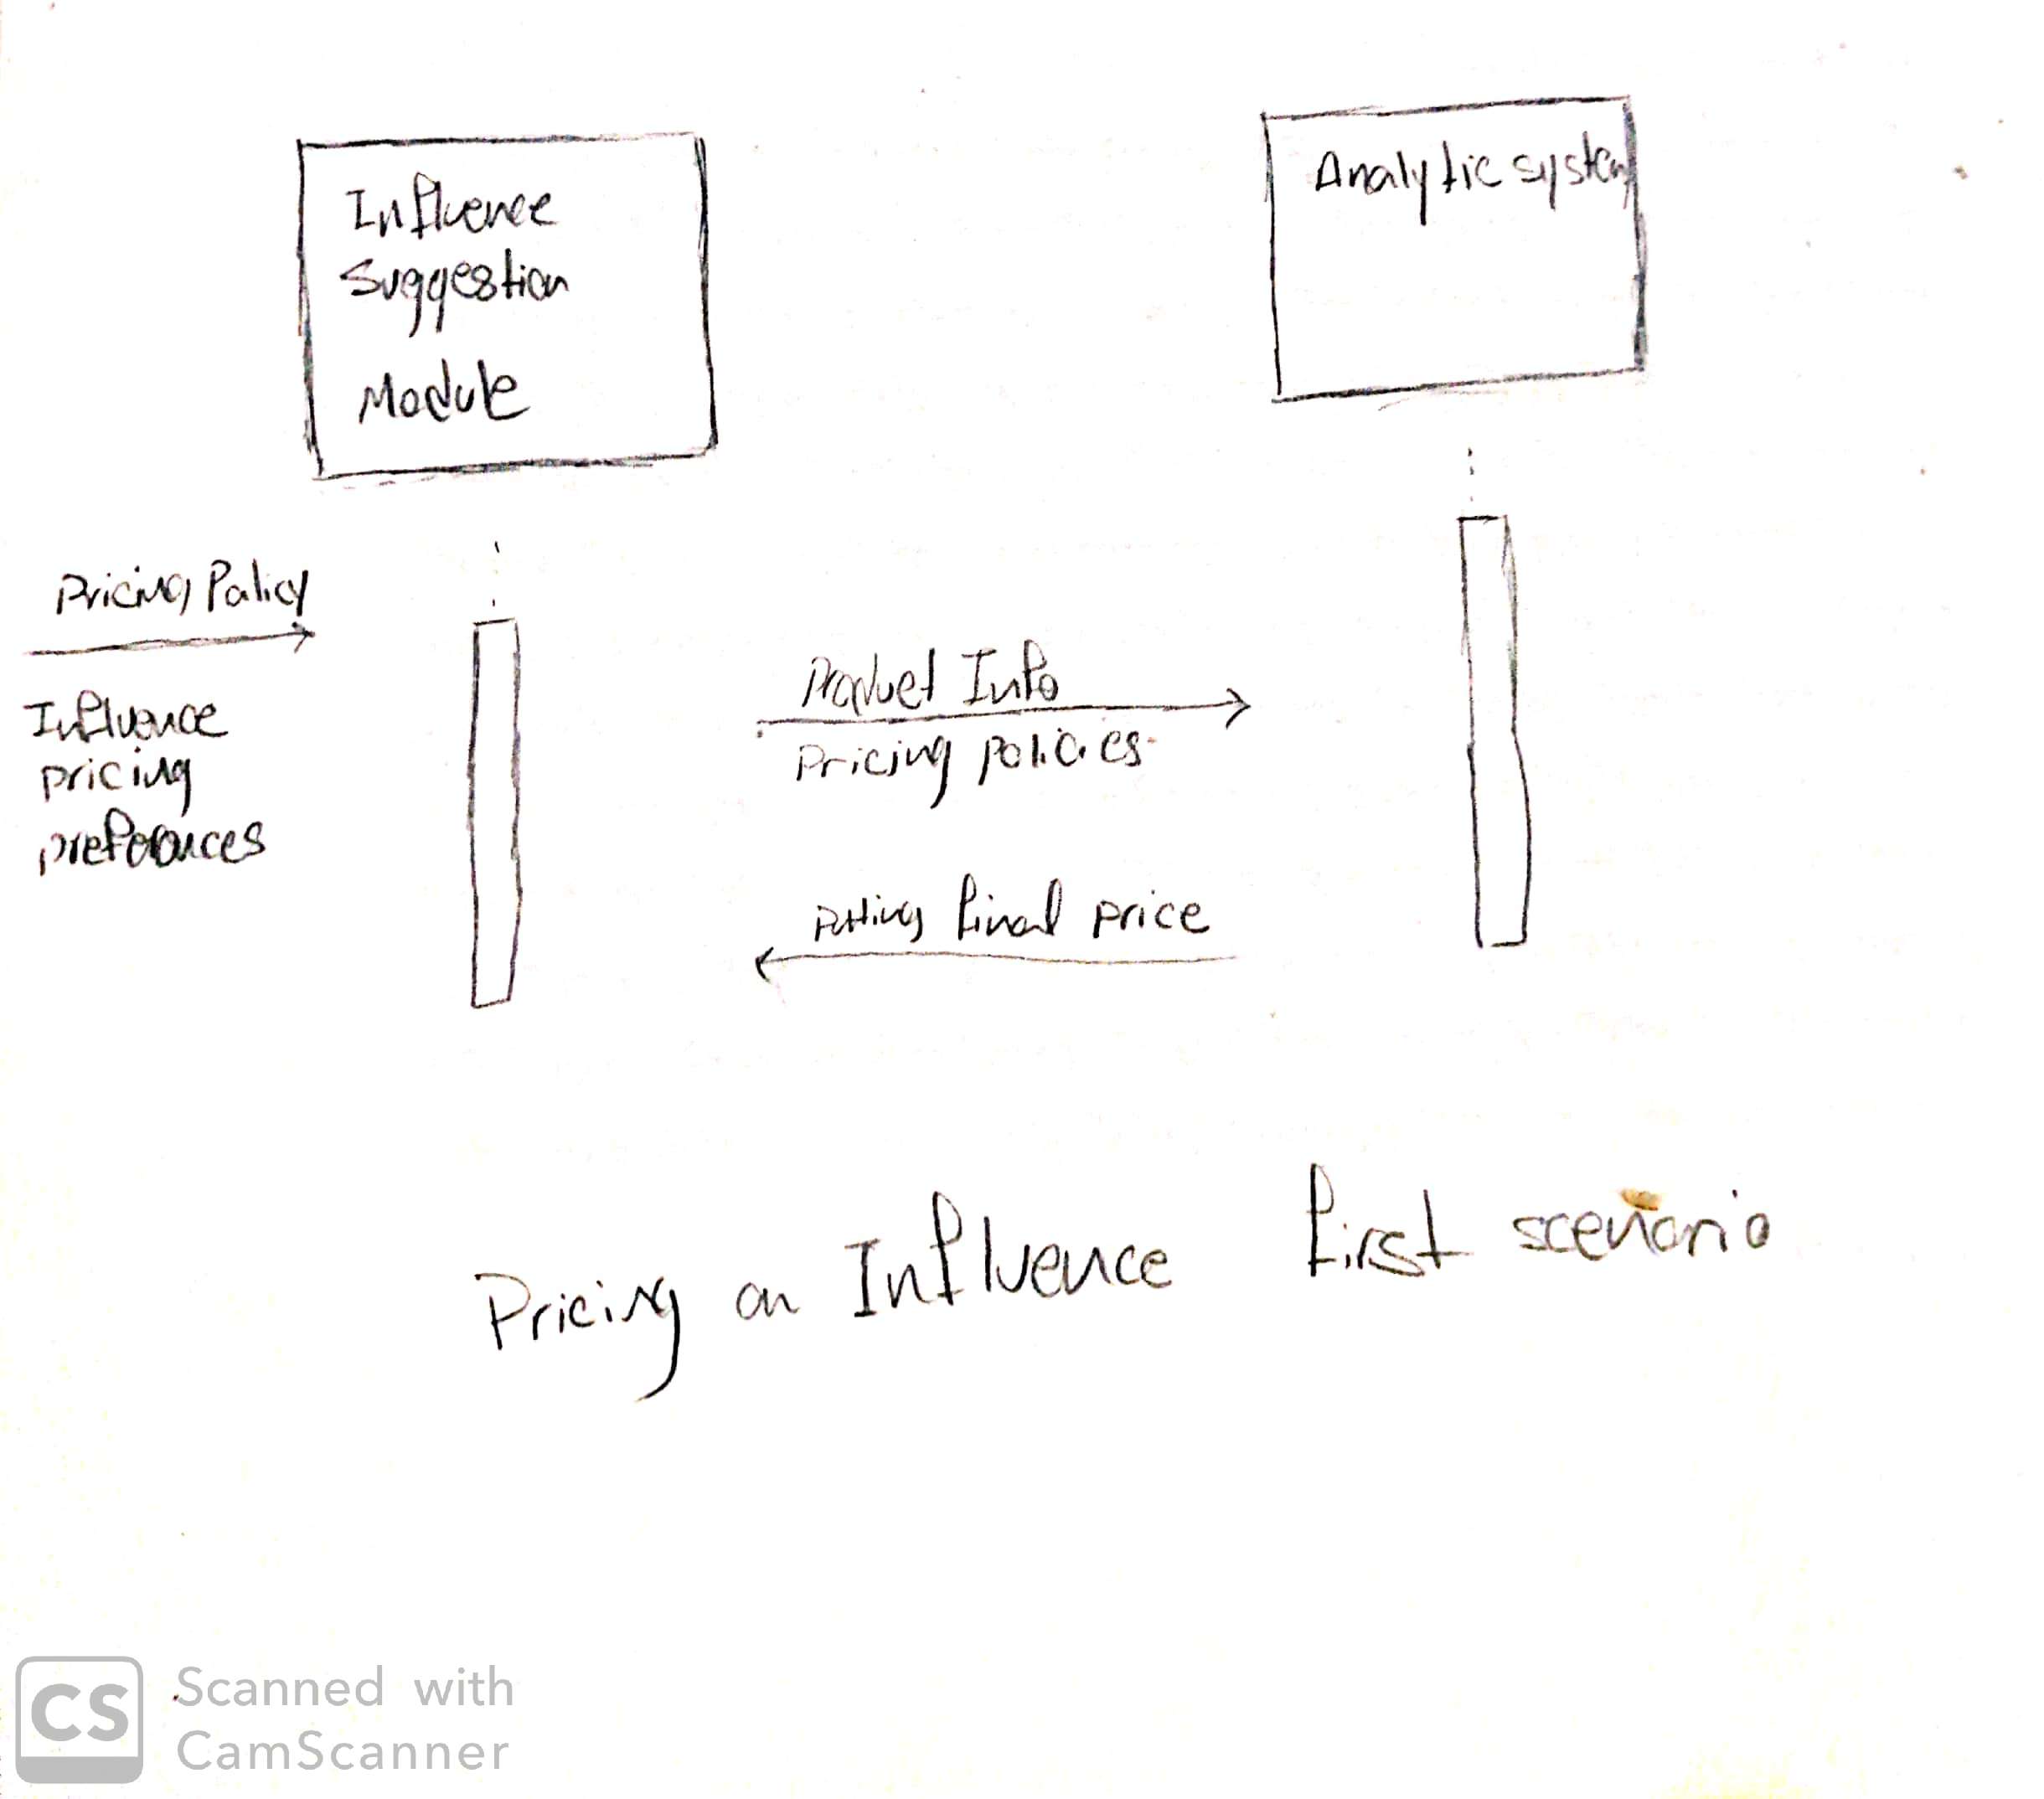 Influence
Suggestion
Module
Analytic system
Pricing Policy
Influence
pricing
preferences
Product Info
Pricing policies
Putting final price
Pricing an Influence first scenario
CS
Scanned with
CamScanner